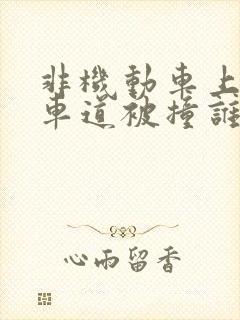 非機動車上
車道被撞誰
心雨留香